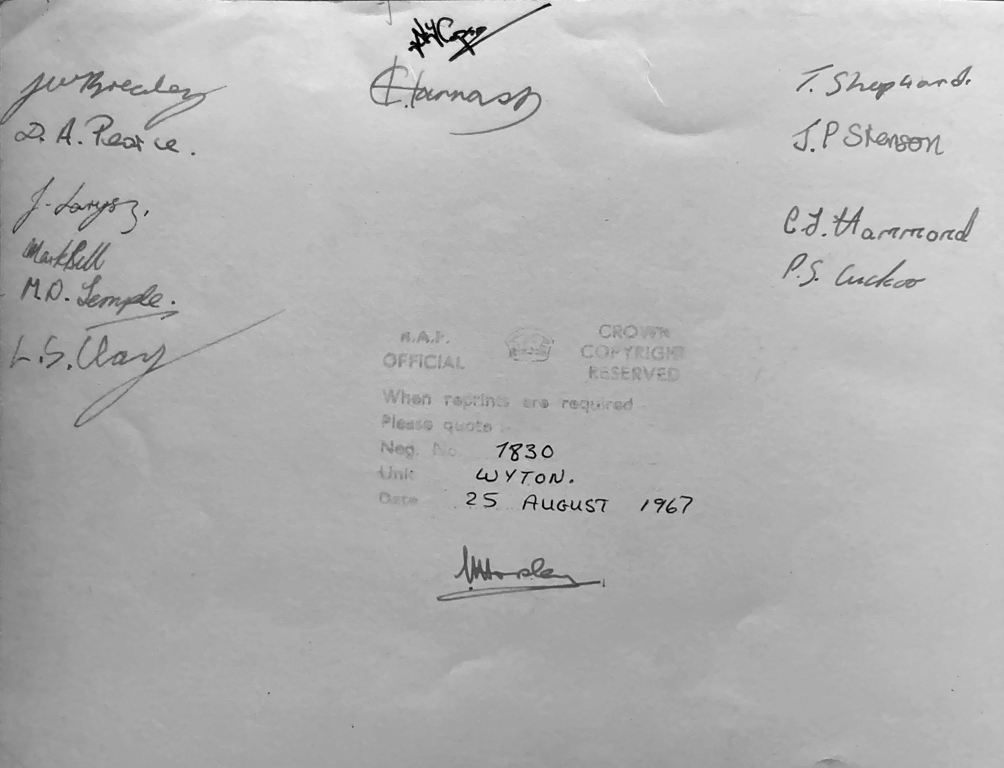 D. A. Pearce.
Mark Bell
M.D. Temple.
L.S. Clay
T. Shephard.
J.P Stenson
C J. Hammond
P.S. Cuckoo
R.A.F. OFFICIAL
CROWN COPYRIGHT RESERVED
When reprints are required
Please quote
Neg. No. 1830
Unit WYTON.
Date 25 AUGUST 1967